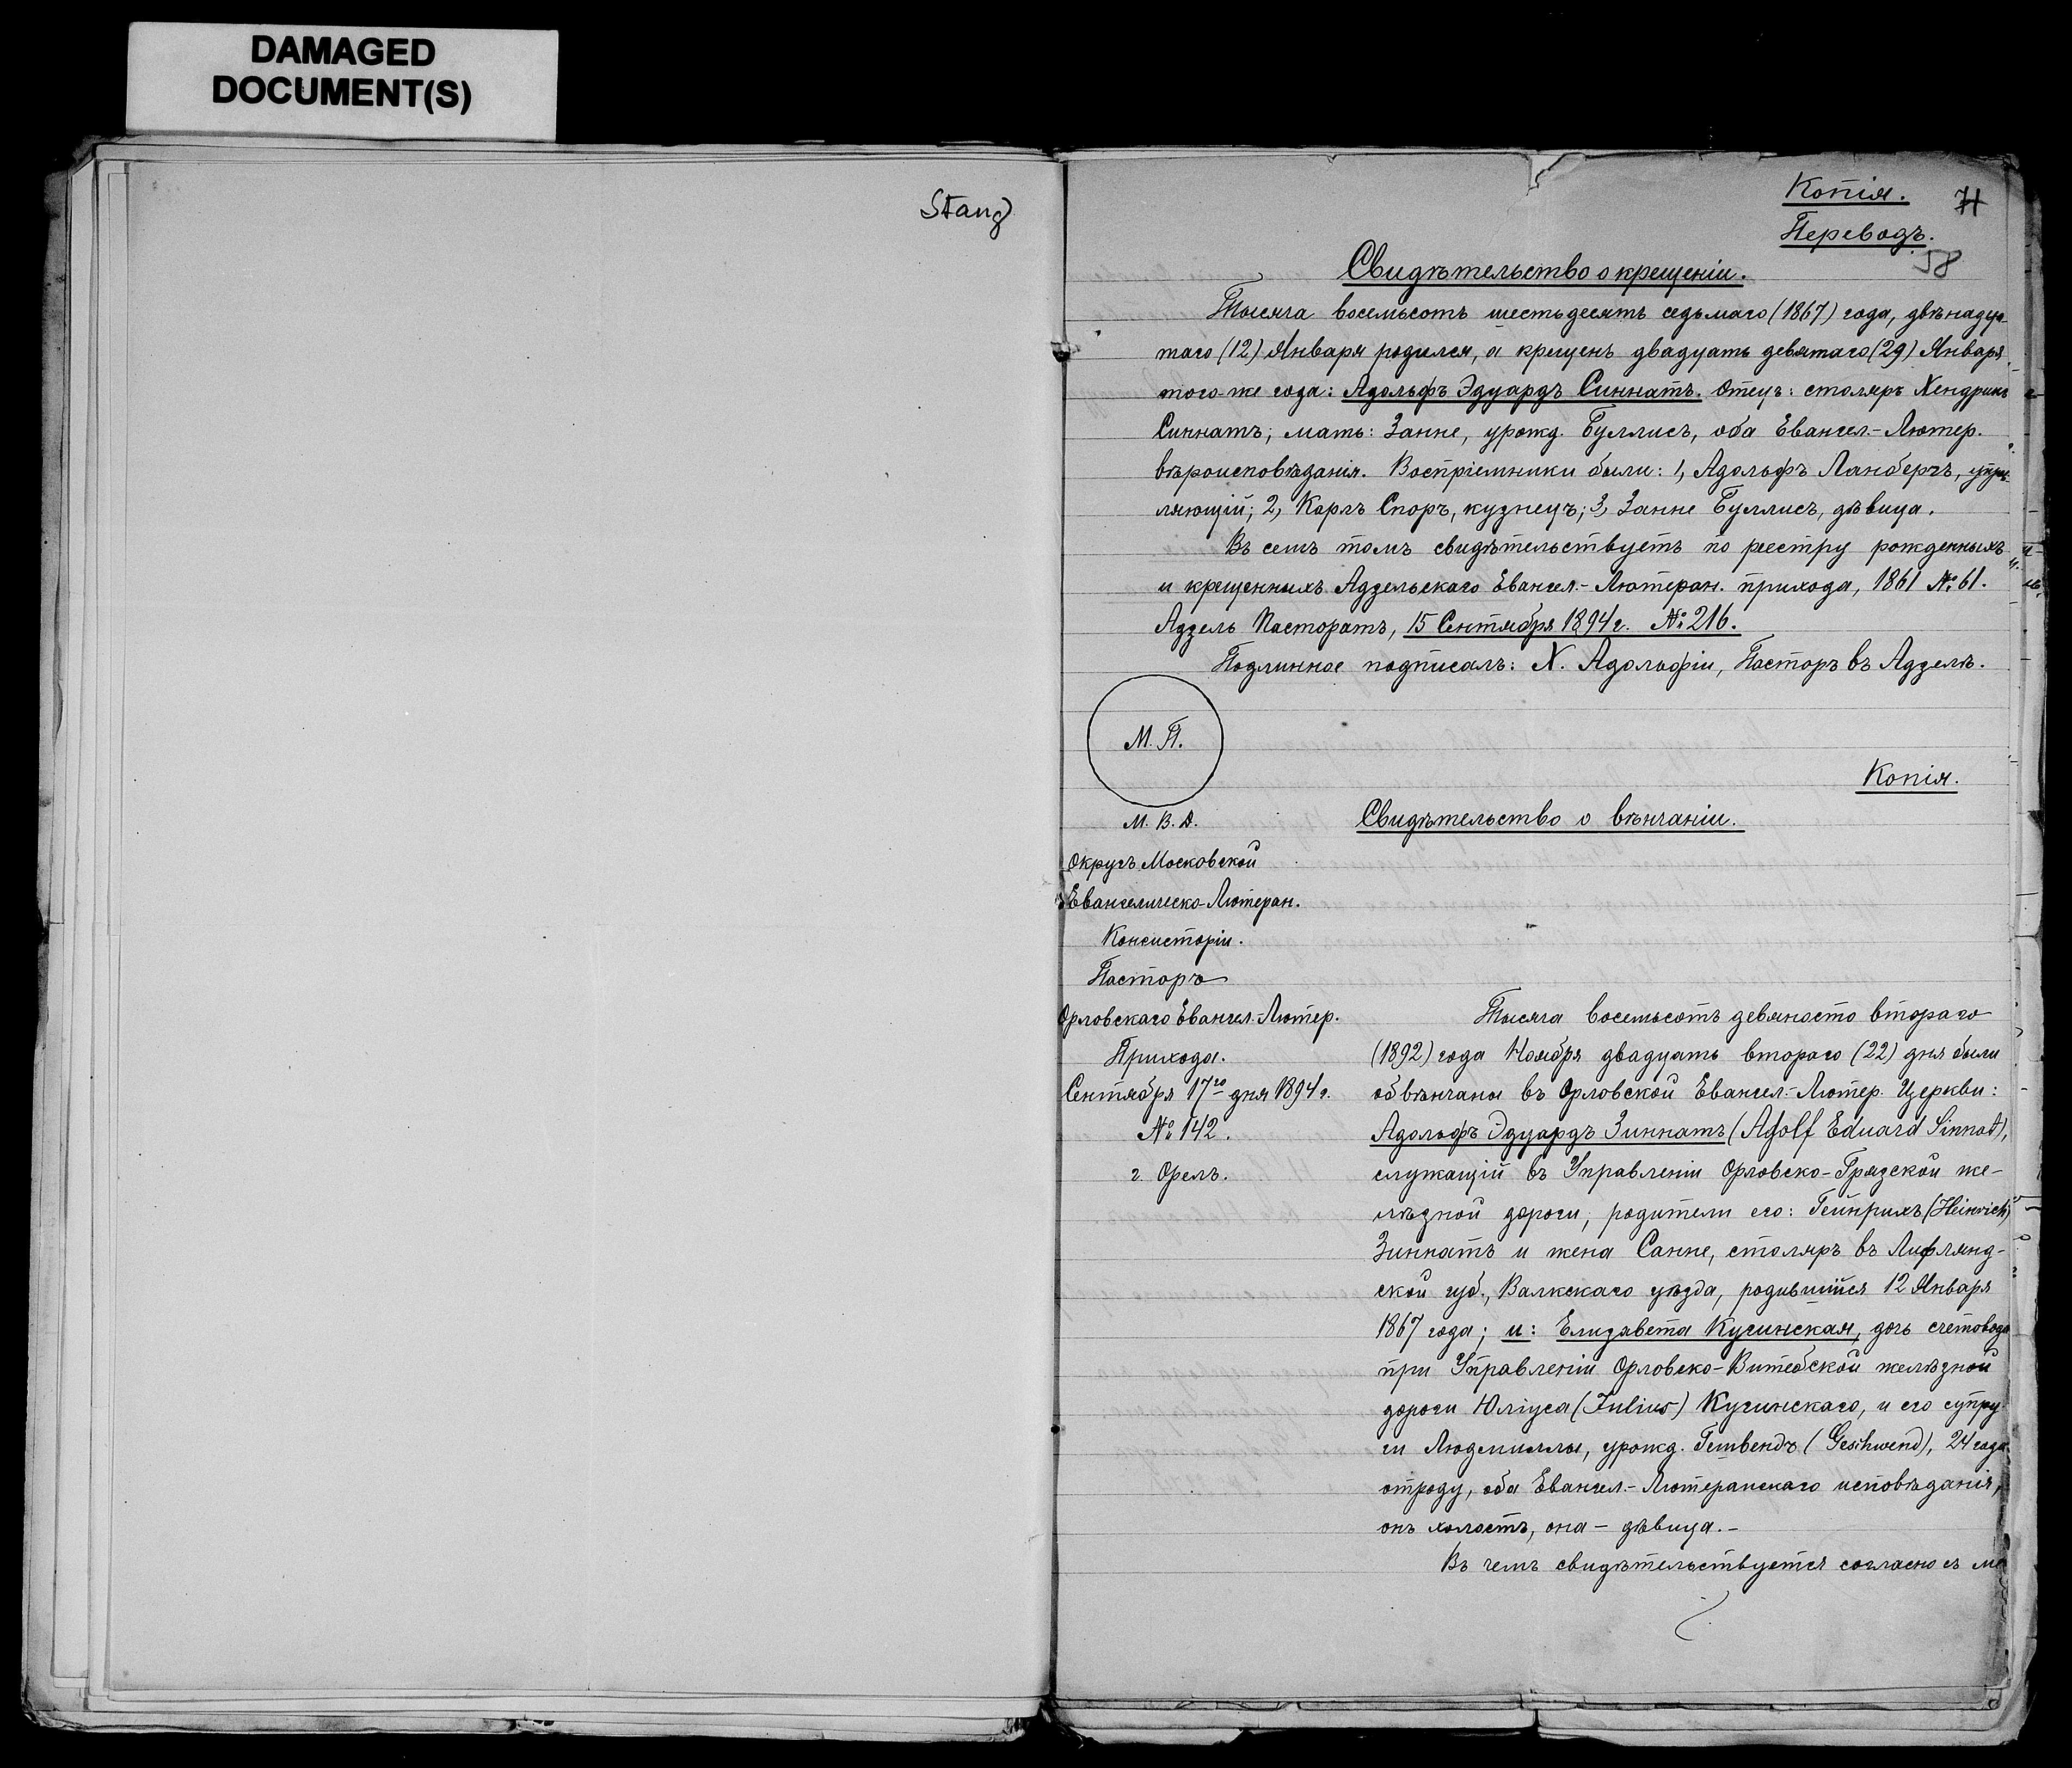 DAMAGED
DOCUMENT(S)
Stang
Копія.
71
Переводъ.
58
Свидѣтельство о крещеніи.
Тысяча восемьсотъ шестьдесятъ седьмаго (1867) года, двѣнадца-
таго (12) Января родился, а крещенъ двадцать девятаго (29) Января
того-же года: Адольфъ Эдуардъ Синнатъ. Отецъ: столяръ Хендрикъ
Синнатъ; мать: Занне, урожд. Буллисъ, оба Евангел.-Лютер.
вѣроисповѣданія. Воспріемники были: 1, Адольфъ Ланбергъ, управ-
ляющій; 2, Карлъ Споръ, кузнецъ; 3, Занне Буллисъ, дѣвица.
Въ семъ томъ свидѣтельствуетъ по реестру рожденныхъ
и крещенныхъ Адзельскаго Евангел.-Лютеран. прихода, 1861 № 61.
Адзель Пасторатъ, 15 Сентября 1894 г. № 216.
Подлинное подписалъ: Х. Адольфіи, Пасторъ въ Адзелѣ.
М. П.
Копія.
М. В. Д.
Свидѣтельство о вѣнчаніи.
Округъ Московской
Евангелическо-Лютеран.
Консисторіи.
Пасторъ
Орловскаго Евангел.-Лютер.
Прихода.
Сентября 17го дня 1894 г.
№ 142.
г. Орелъ.
Тысяча восемьсотъ девяносто втораго
(1892) года Ноября двадцать втораго (22) дня были
обвѣнчаны въ Орловской Евангел.-Лютер. Церкви:
Адольфъ Эдуардъ Зиннатъ (Adolf Eduard Sinnat),
служащій въ Управленіи Орловско-Грязской же-
лѣзной дороги, родители его: Гейнрихъ (Heinrich)
Зиннатъ и жена Санне, столяръ въ Лифлянд-
ской губ., Валкскаго уѣзда, родившійся 12 Января
1867 года; и: Елизавета Кучинская, дочь счетовода
при Управленіи Орловско-Витебской желѣзной
дороги Юліуса (Julius) Кучинскаго, и его супру-
ги Людмиллы, урожд. Гешвендъ (Geschwend), 24 года
отроду, оба Евангел.-Лютеранскаго исповѣданія,
онъ холостъ, она - дѣвица.-
Въ чемъ свидѣтельствуется согласно съ ме